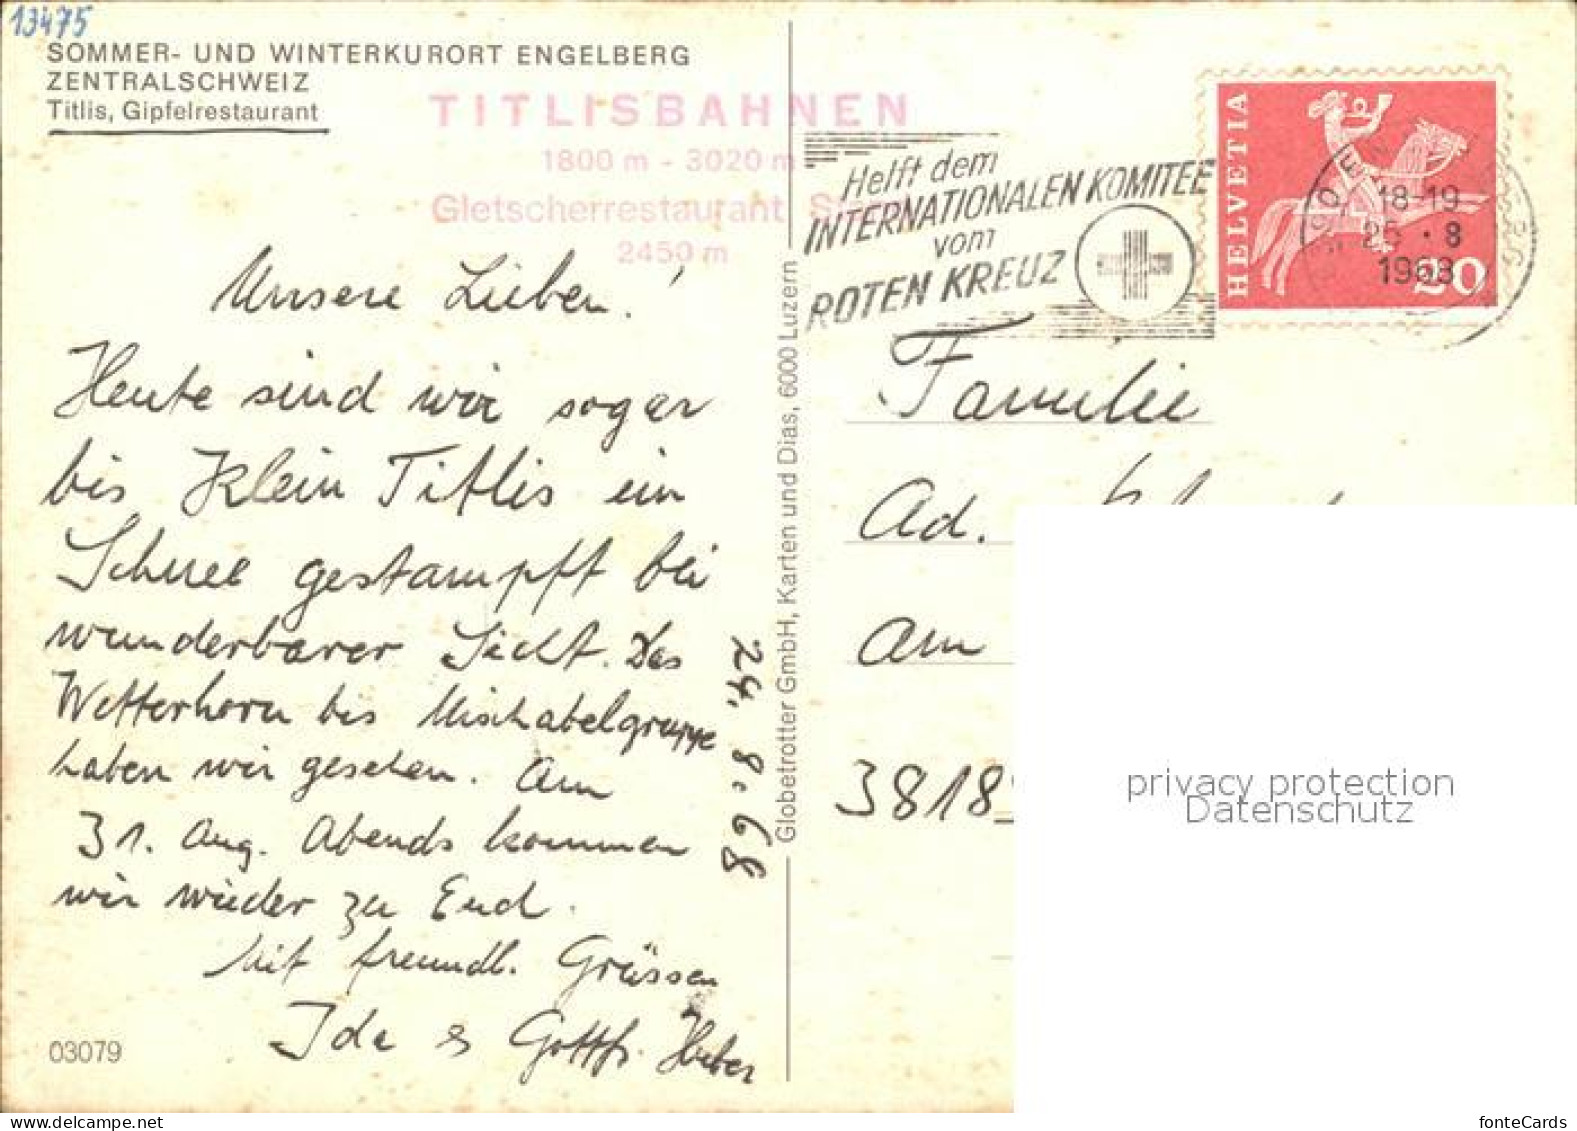 13475
SOMMER- UND WINTERKURORT ENGELBERG
ZENTRALSCHWEIZ
Titlis, Gipfelrestaurant
TITLISBAHNEN
1800 m - 3020 m
Gletscherrestaurant
2450 m
Unsere Lieben!
Heute sind wir sogar
bis Klein Titlis im
Schnee gestampft bei
wunderbarer Sicht. Das
Wetterhorn bis Mischabelgruppe
haben wir gesehen. Am
31. Aug. Abends kommen
wir wieder zu Euch.
Mit freundl. Grüssen
Ida & Gottf. Huber
24. 8. 68
03079
Globetrotter GmbH, Karten und Dias, 6000 Luzern
Helft dem
INTERNATIONALEN KOMITEE
vom
ROTEN KREUZ
HELVETIA
20
18-19
25. 8
1968
Familie
Ad.
Am
3818
privacy protection
Datenschutz
www.delcampe.net
fonteCards